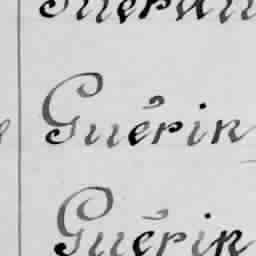 Guérin
Guérin